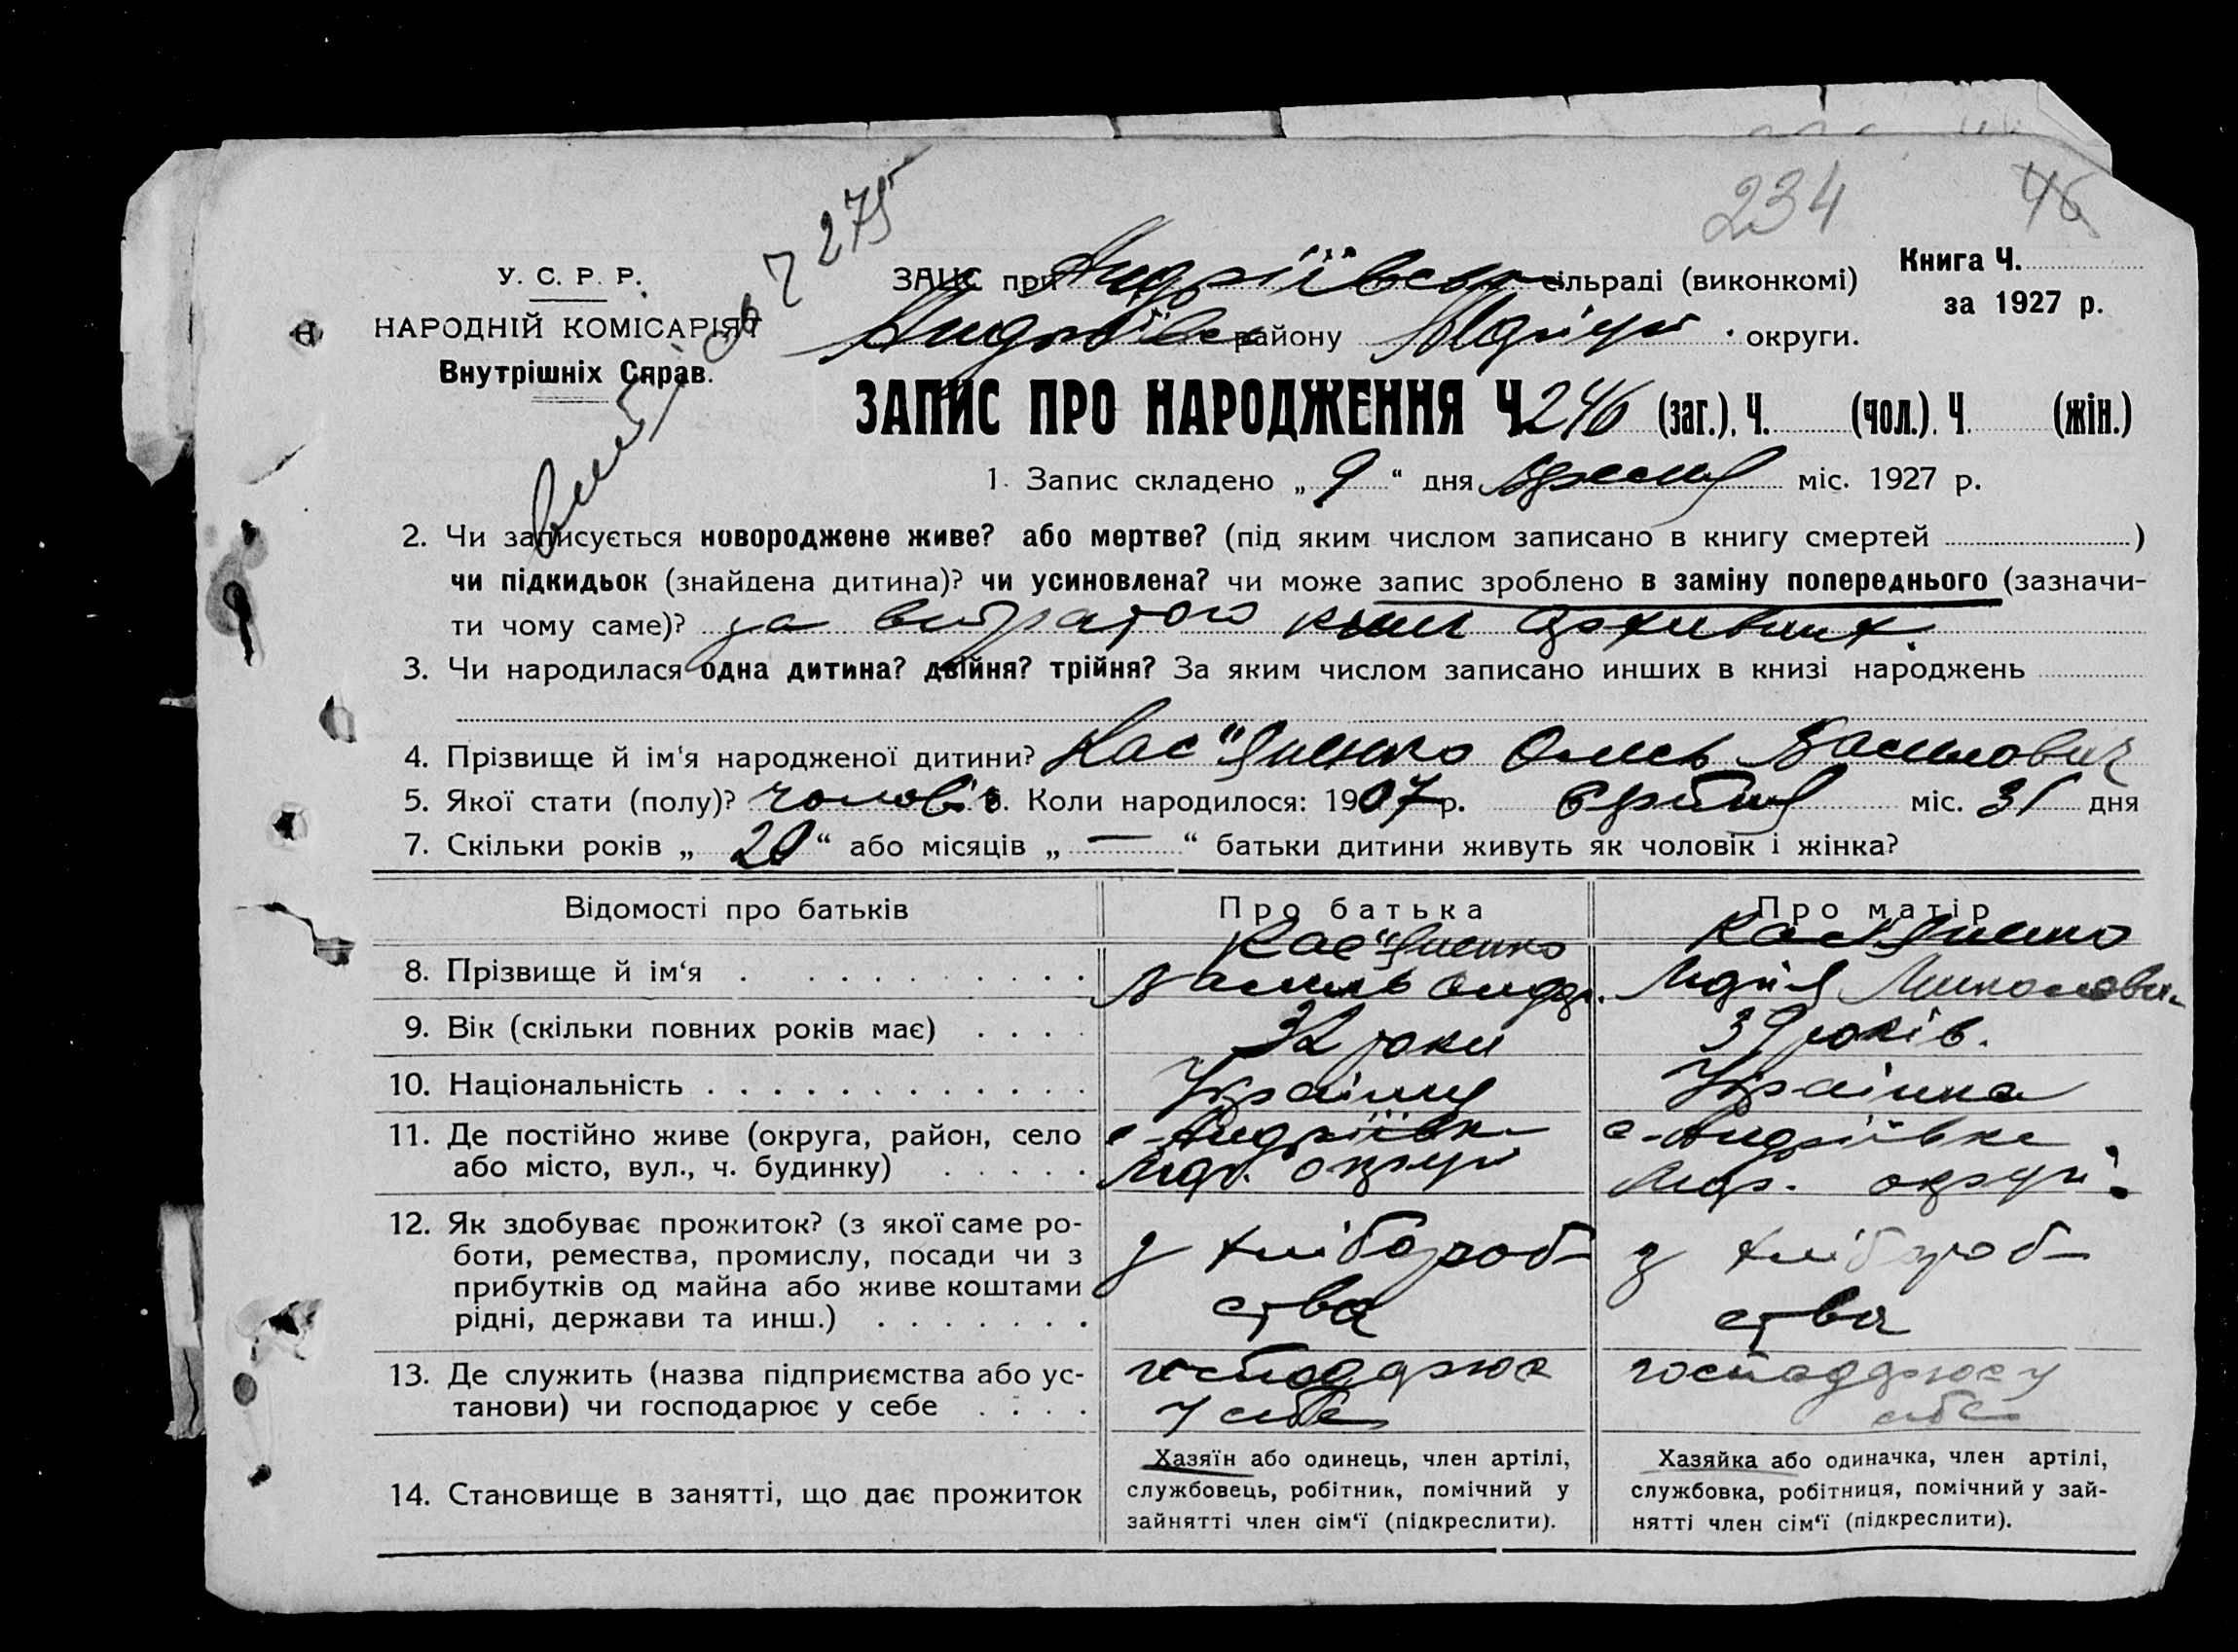 234 46
275
У. С. Р. Р.
НАРОДНІЙ КОМІСАРІЯТ
Внутрішніх Справ.
ЗАЦС при Андріївськ сільраді (виконкомі)
Андріївськ району округи.
Книга Ч.
за 1927 р.
ЗАПИС ПРО НАРОДЖЕННЯ Ч. 246 (заг.), Ч. (чол.), Ч. (жін.)
1. Запис складено „ 9 “ дня міс. 1927 р.
2. Чи записується новороджене живе? або мертве? (під яким числом записано в книгу смертей )
чи підкидьок (знайдена дитина)? чи усиновлена? чи може запис зроблено в заміну попереднього (зазначи-
ти чому саме)? за витратою книг архивних.
3. Чи народилася одна дитина? двійня? трійня? За яким числом записано инших в книзі народжень
4. Прізвище й ім'я народженої дитини? Кас"яненко Олесь Василович
5. Якої стати (полу)? чоловіч 6. Коли народилося: 1907 р. міс. 31 дня
7. Скільки років „ 20 “ або місяців „ — “ батьки дитини живуть як чоловік і жінка?
Відомості про батьків Про батька Про матір
8. Прізвище й ім‘я Кас"яненко Василь Андр. Кас"яненко Миколаєвн.
9. Вік (скільки повних років має) 32 роки 39 років.
10. Національність Українец Українка
11. Де постійно живе (округа, район, село
або місто, вул., ч. будинку) с-Андріївка округи с-Андріївка округи
12. Як здобуває прожиток? (з якої саме ро-
боти, ремества, промислу, посади чи з
прибутків од майна або живе коштами
рідні, держави та инш.) з хлібороб-ства з хлібороб-ства
13. Де служить (назва підприємства або ус-
танови) чи господарює у себе господарює у себе господарює у себе
14. Становище в занятті, що дає прожиток
Хазяїн або одинець, член артілі,
службовець, робітник, помічний у
зайнятті член сім‘ї (підкреслити).
Хазяйка або одиначка, член артілі,
службовка, робітниця, помічний у зай-
нятті член сім‘ї (підкреслити).